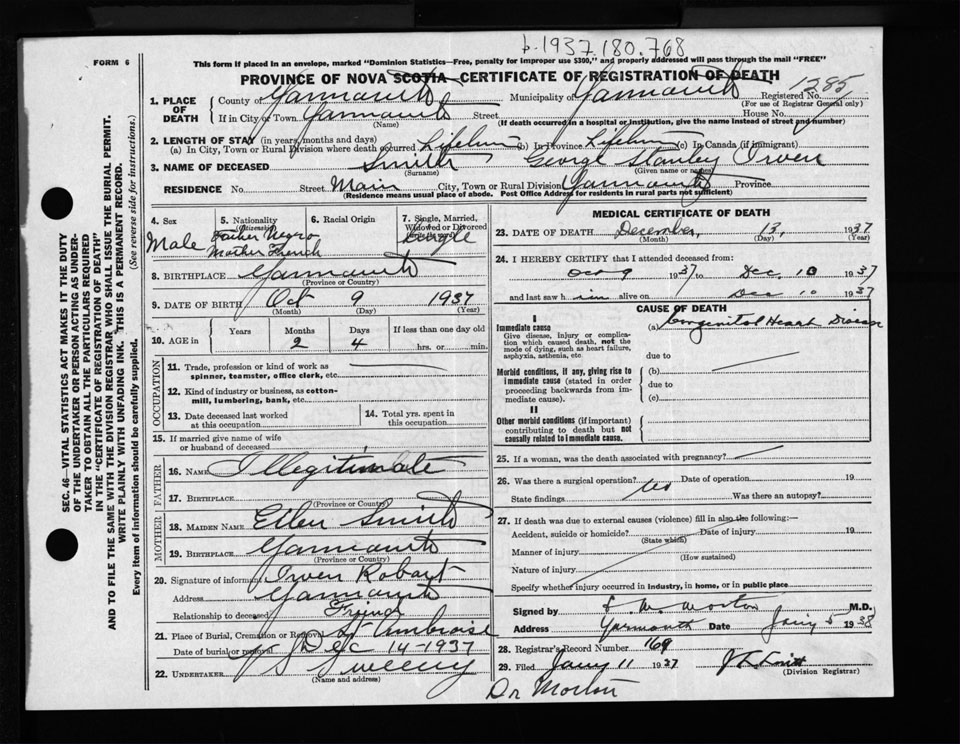 b. 1937.180.768
FORM 6
This form if placed in an envelope, marked "Dominion Statistics—Free, penalty for improper use $300," and properly addressed will pass through the mail "FREE"
PROVINCE OF NOVA SCOTIA—CERTIFICATE OF REGISTRATION OF DEATH
1285
1. PLACE OF DEATH
County of Yarmouth Municipality of Yarmouth Registered No.
(For use of Registrar General only)
If in City or Town Yarmouth Street House No.
(Name) (If death occurred in a hospital or institution, give the name instead of street and number)
2. LENGTH OF STAY (in years, months and days)
(a) In City, Town or Rural Division where death occurred Lifetime (b) In Province Lifetime (c) In Canada (if immigrant)
3. NAME OF DECEASED Smith George Stanley Orven
(Surname) (Given name or names)
RESIDENCE No. Street Main City, Town or Rural Division Yarmouth Province
(Residence means usual place of abode. Post Office Address for residents in rural parts not sufficient)
4. Sex
Male
5. Nationality
(Citizenship)
Father Negro
Mother French
6. Racial Origin
7. Single, Married, Widowed or Divorced
Single
8. BIRTHPLACE Yarmouth
(Province or Country)
9. DATE OF BIRTH Oct 9 1937
(Month) (Day) (Year)
10. AGE in
Years Months Days If less than one day old
2 4 hrs. or min.
OCCUPATION
11. Trade, profession or kind of work as spinner, teamster, office clerk, etc.
12. Kind of industry or business, as cotton-mill, lumbering, bank, etc.
13. Date deceased last worked at this occupation
14. Total yrs. spent in this occupation
15. If married give name of wife or husband of deceased
FATHER
16. NAME Illegitimate
17. BIRTHPLACE
(Province or Country)
MOTHER
18. MAIDEN NAME Ellen Smith
19. BIRTHPLACE Yarmouth
(Province or Country)
20. Signature of informant Orven Robart
Address Yarmouth
Relationship to deceased Friend
21. Place of Burial, Cremation or Removal St Ambroise
Date of burial or removal Dec 14-1937
22. UNDERTAKER Sweeny
(Name and address)
MEDICAL CERTIFICATE OF DEATH
23. DATE OF DEATH December, 13, 1937
(Month) (Day) (Year)
24. I HEREBY CERTIFY that I attended deceased from:
Oct 9 1937 to Dec. 10 1937
and last saw him alive on Dec 10 1937
CAUSE OF DEATH
I
Immediate cause
Give disease, injury or complication which caused death, not the mode of dying, such as heart failure, asphyxia, asthenia, etc
(a) Congenital Heart Disease
due to
Morbid conditions, if any, giving rise to immediate cause (stated in order proceeding backwards from immediate cause).
(b)
due to
(c)
II
Other morbid conditions (if important) contributing to death but not causally related to immediate cause.
25. If a woman, was the death associated with pregnancy?
26. Was there a surgical operation? Date of operation 19
State findings Was there an autopsy?
27. If death was due to external causes (violence) fill in also the following:—
Accident, suicide or homicide? Date of injury 19
(State which)
Manner of injury
(How sustained)
Nature of injury
Specify whether injury occurred in industry, in home, or in public place
Signed by Morton M.D.
Address Yarmouth Date Jany 5 1938
28. Registrar's Record Number 169
29. Filed Jany 11 1937
(Division Registrar)
Dr Morton
SEC. 46—VITAL STATISTICS ACT MAKES IT THE DUTY
OF THE UNDERTAKER OR PERSON ACTING AS UNDER-
TAKER TO OBTAIN ALL THE PARTICULARS REQUIRED
IN THE "CERTIFICATE OF REGISTRATION OF DEATH"
AND TO FILE THE SAME WITH THE DIVISION REGISTRAR WHO SHALL ISSUE THE BURIAL PERMIT.
WRITE PLAINLY WITH UNFADING INK. THIS IS A PERMANENT RECORD.
Every item of information should be carefully supplied. (See reverse side for instructions.)